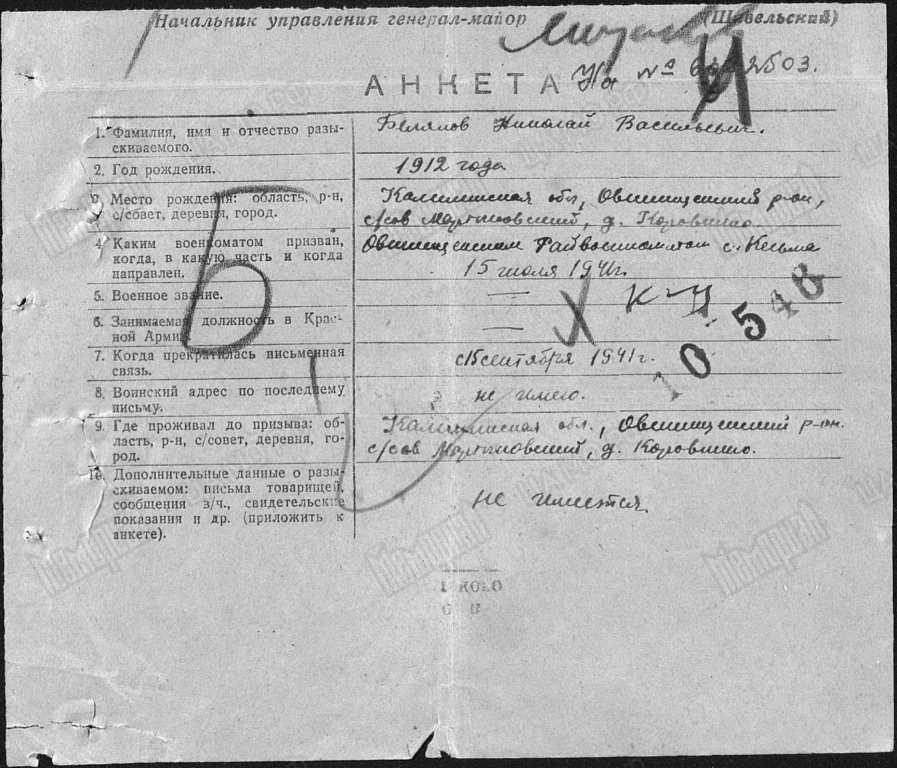 Начальник управления генерал-майор (Шавельский)
АНКЕТА На № 2503.
1. Фамилия, имя и отчество разыскиваемого. Беляков Николай Васильевич.
2. Год рождения. 1912 года
3. Место рождения: область, р-н, Калининская обл, Овинищенский р-он,
с/совет, деревня, город. с/сов Мартыновский, д. Коровкино.
4. Каким военкоматом призван, Овинищенским Райвоенкоматом с. Кесьма
когда, в какую часть и когда
направлен. 15 июля 1941г.
5. Военное звание. —
К-Ц
6. Занимаемая должность в Красной Армии —
10548
7. Когда прекратилась письменная
связь. с 15 сентября 1941 г.
8. Воинский адрес по последнему
письму. не имею.
9. Где проживал до призыва: об- Калининская обл., Овинищенский р-он.
ласть, р-н, с/совет, деревня, го- с/сов Мартыновский, д. Коровкино.
род.
10. Дополнительные данные о разы-
скиваемом: письма товарищей,
сообщения в/ч., свидетельские не имеются
показания и др. (приложить к
анкете).
Б